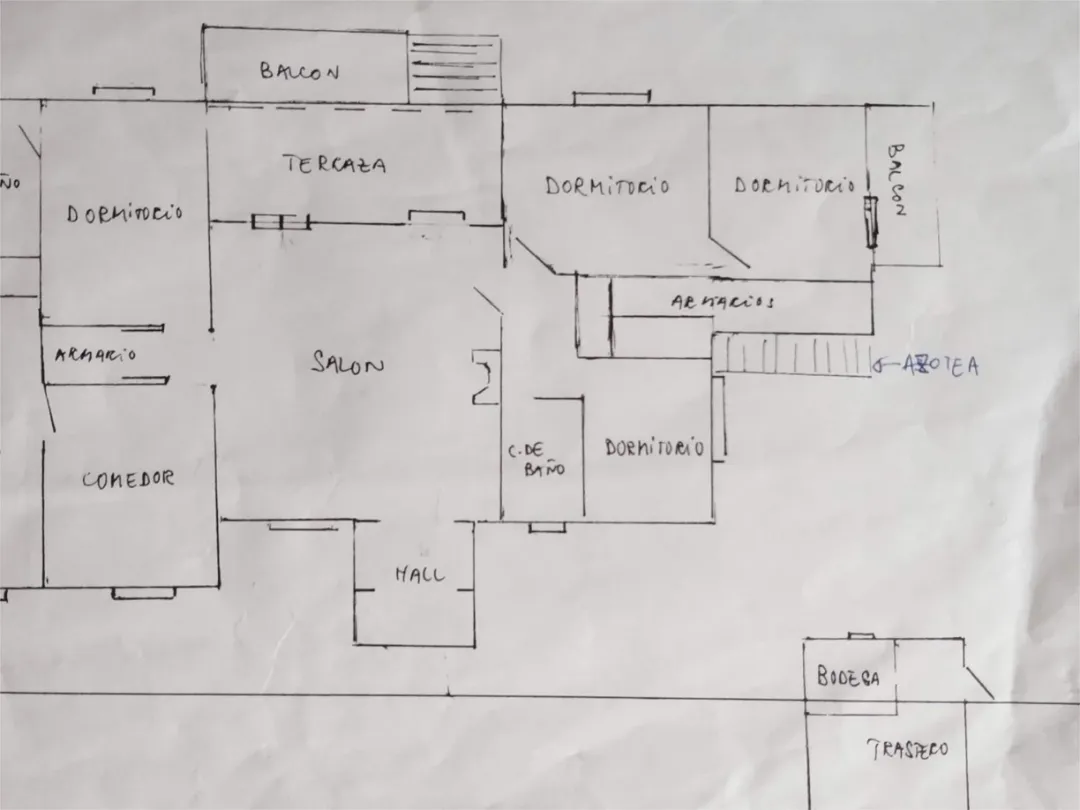 BALCON
TERRAZA
DORMITORIO
DORMITORIO
BALCON
ÑO
DORMITORIO
ARMARIOS
ARMARIO
SALON
AZOTEA
C. DE
BAÑO
DORMITORIO
COMEDOR
HALL
BODEGA
TRASTERO